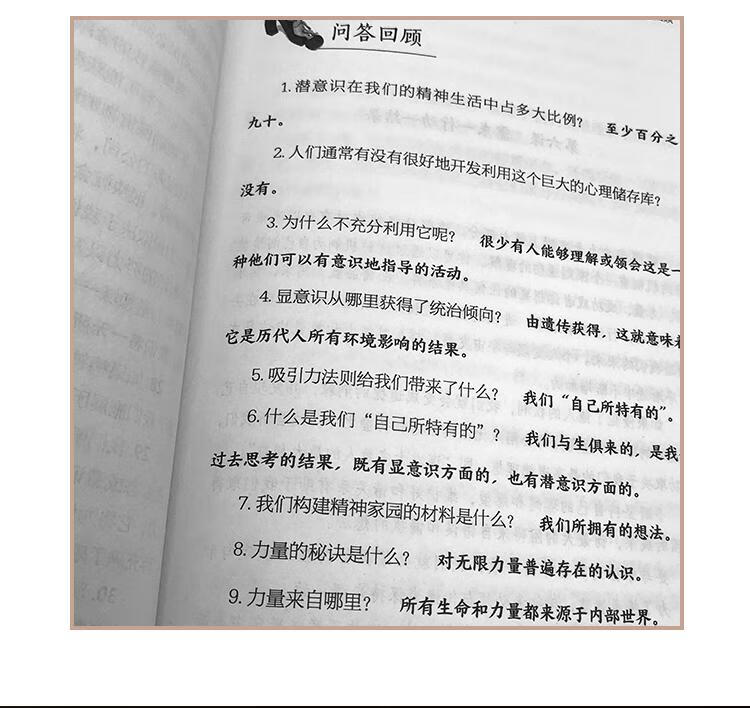 问答回顾
1. 潜意识在我们的精神生活中占多大比例？ 至少百分之
九十。
2. 人们通常有没有很好地开发利用这个巨大的心理储存库？
没有。
3. 为什么不充分利用它呢？ 很少有人能够理解或领会这是一
种他们可以有意识地指导的活动。
4. 显意识从哪里获得了统治倾向？ 由遗传获得，这就意味着
它是历代人所有环境影响的结果。
5. 吸引力法则给我们带来了什么？ 我们“自己所特有的”。
6. 什么是我们“自己所特有的”？ 我们与生俱来的，是我
过去思考的结果，既有显意识方面的，也有潜意识方面的。
7. 我们构建精神家园的材料是什么？ 我们所拥有的想法。
8. 力量的秘诀是什么？ 对无限力量普遍存在的认识。
9. 力量来自哪里？ 所有生命和力量都来源于内部世界。